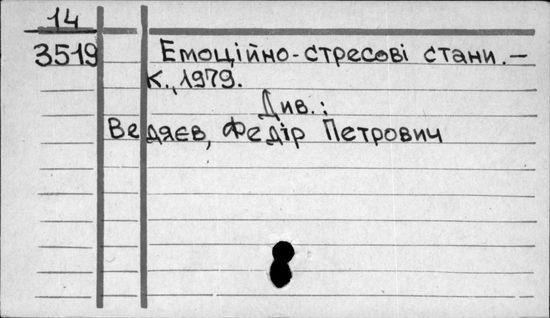 14
3519 Емоційно-стресові стани.–
К., 1979.
Див.:
Ведяєв, Федір Петрович